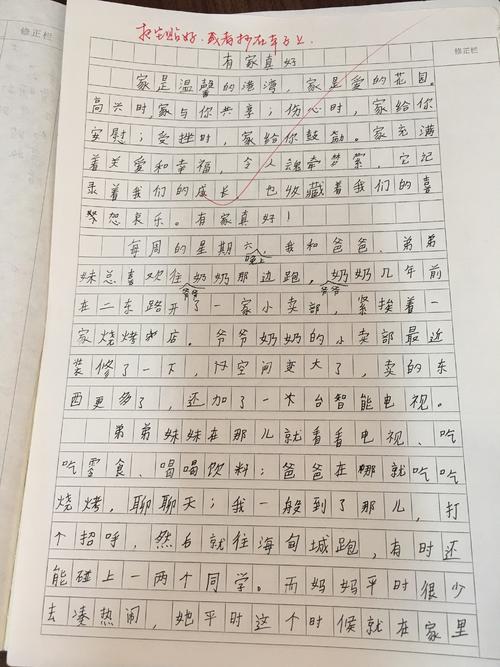 修正栏
把它贴好，或者抄在本子上.
修正栏
有家真好
家是温馨的港湾，家是爱的花园。
高兴时，家与你共享；伤心时，家给你
安慰；受挫时，家给你鼓励。家充满
着关爱和幸福，令人魂牵梦萦，它记
录着我们的成长，也收藏着我们的喜
怒哀乐。有家真好！
每周的星期六晚上，我和爸爸、弟弟
妹总喜欢往爷爷奶奶那边跑，爷爷奶奶几年前
在二东路开了一家小卖部，紧挨着一
家烧烤店。爷爷奶奶的小卖部最近
装修了一下，空间变大了，卖的东
西更多了，还加了一大台智能电视。
弟弟妹妹在那儿就看看电视、吃
吃零食、喝喝饮料；爸爸在哪就吃吃
烧烤，聊聊天；我一般到了那儿，打
个招呼，然后就往海甸城跑，有时还
能碰上一两个同学。而妈妈平时很少
去凑热闹，她平时这个时候就在家里